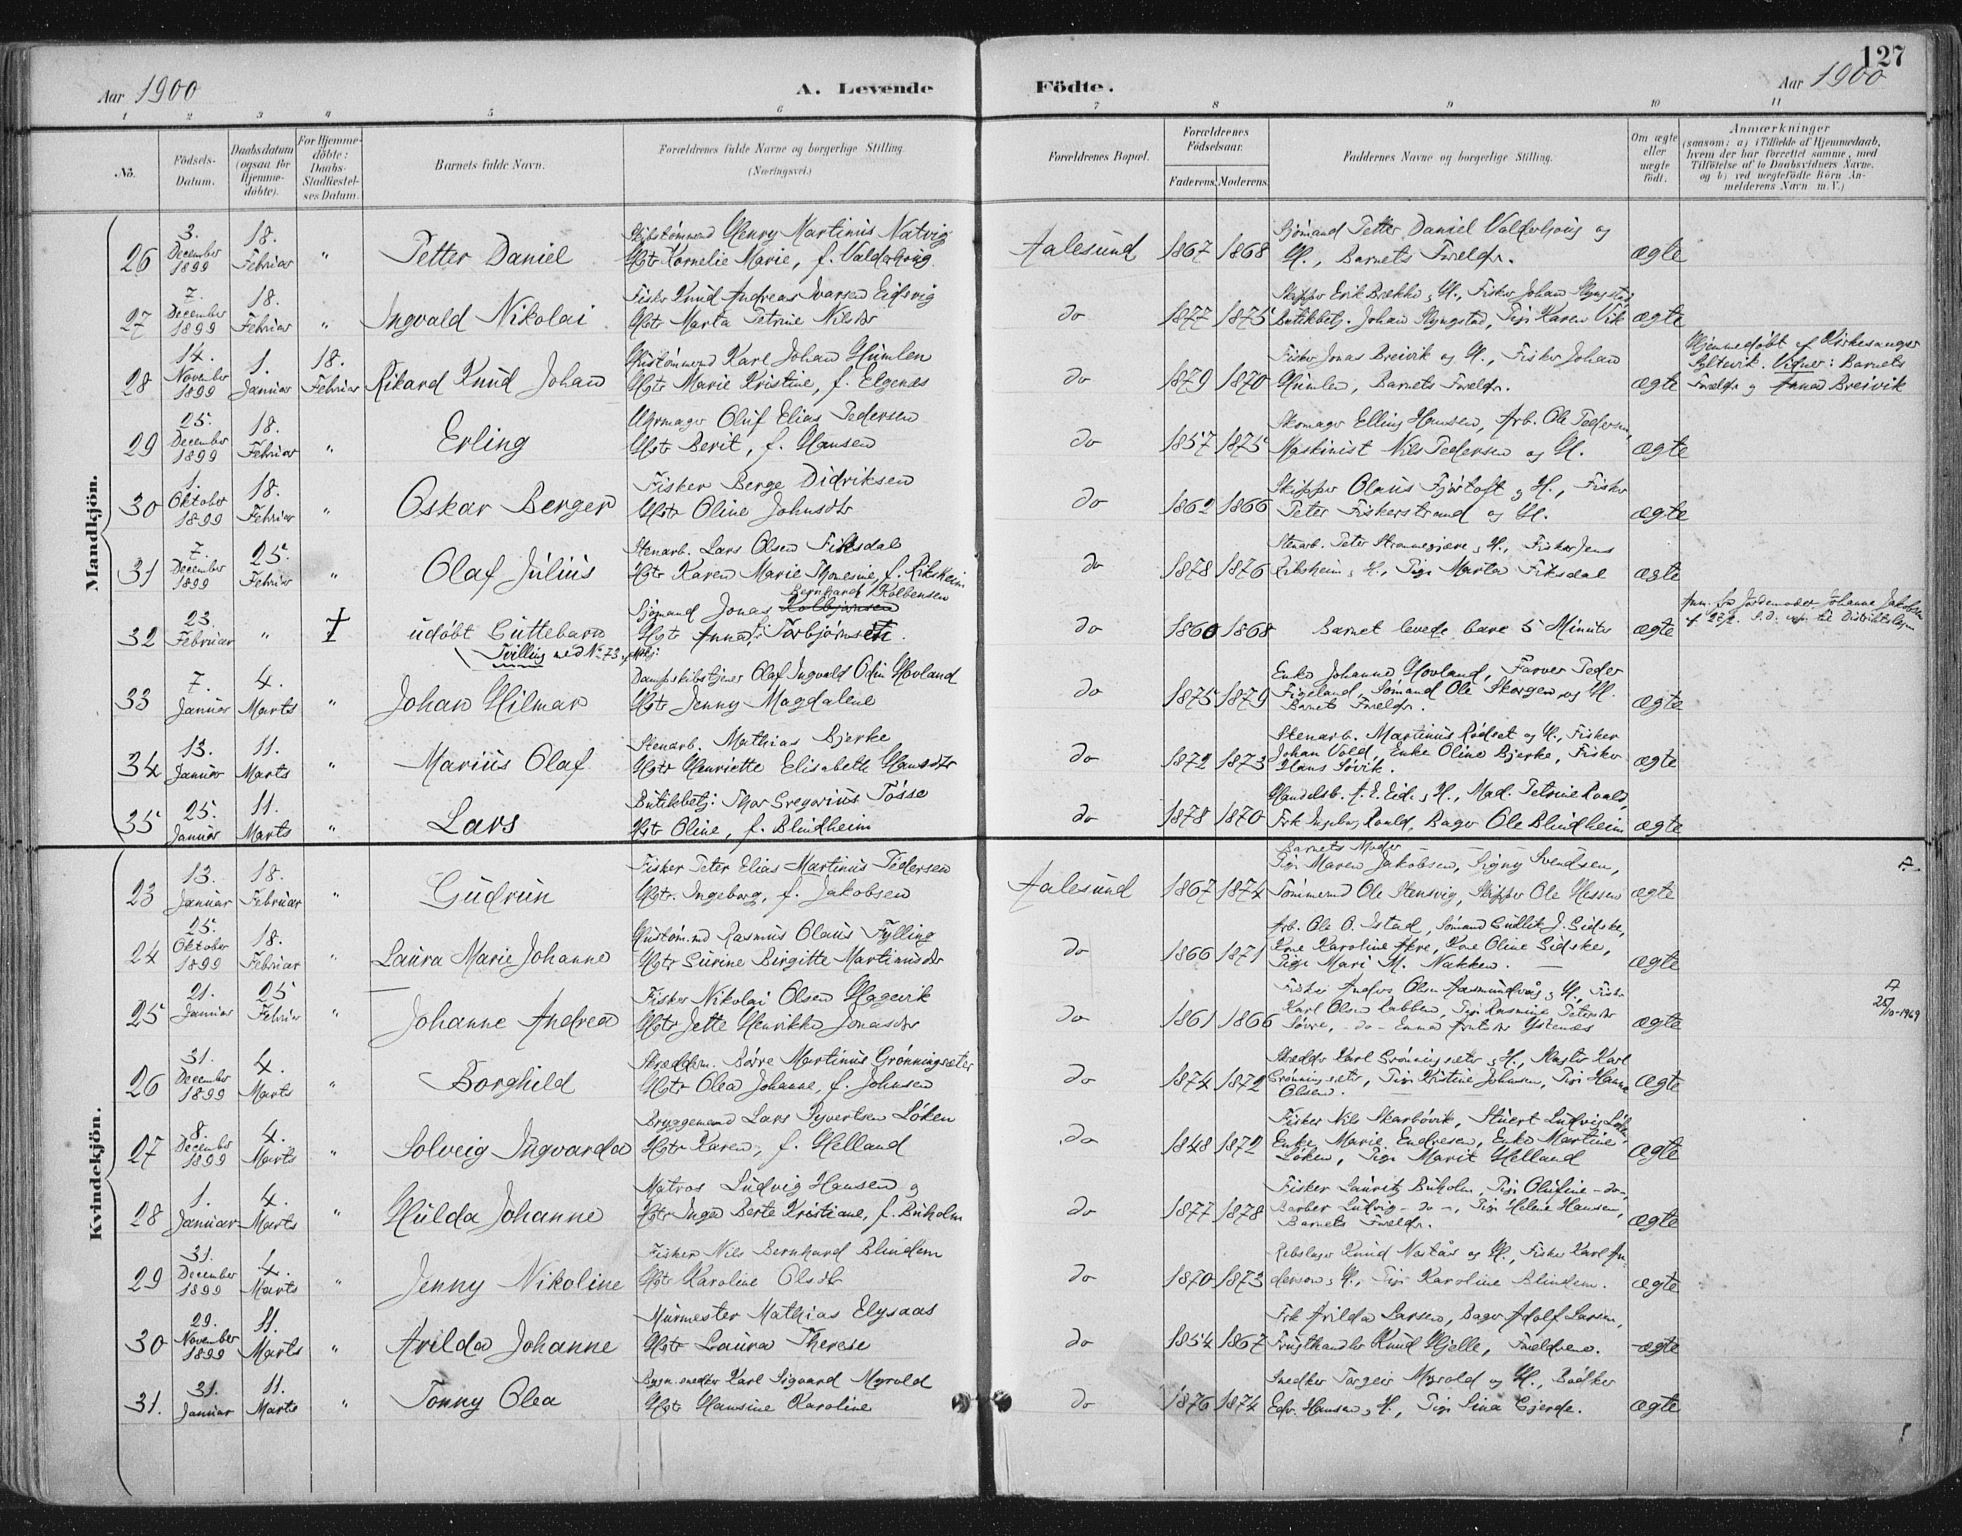 127
Aar 1900
A. Levende
Födte.
Aar 1900
1 2 3 4 5 6 7 8 9 10 11
No.
Födsels-
Datum.
Daabsdatum
(ogsaa for
Hjemme-
döbte).
For Hjemme-
döbte:
Daabs-
Stadfæstel-
ses Datum.
Barnets fulde Navn.
Forældrenes fulde Navne og borgerlige Stilling.
(Næringsvei.)
Forældrenes Bopæl.
Forældrenes
Födselsaar.
Faderens. Moderens.
Faddernes Navne og borgerlige Stilling.
Om ægte
eller
uægte
födt.
Anmærkninger
(saasom: a) i Tilfælde af Hjemmedaab,
hvem der har forrettet samme, med
Tilföielse af to Daabsvidners Navne.
og b) ved uægtefödte Börn An-
melderens Navn m. V.)
Mandkjön.
26
3.
December
1899
18.
Februar
"
Petter Daniel
Henry Martinus Natvig
Hstr Kornelie Marie, f. Valderhoug
Aalesund
1867 1868
Sjömand Petter Daniel Valderhoug og
H., Barnets Foreldr.
ægte
27
7.
December
1899
18.
Februar
"
Ingvald Nikolai
Fisker Knud Andreas Ivarsen Eidsvig
Hstr Marta Petrine Nilsdtr
do
1877 1875
Skipper Erik Brekke og H., Fisker Johan Myngstad
Butikbetj. Johan Myngstad, Pige Karen Vik
ægte
28
14.
November
1899
1.
Januar
18.
Februar
Rikard Knud Johan
Karl Johan Humlen
Hstr Marie Kristine, f. Elgenes
do
1879 1870
Fisker Jonas Breivik og H., Fisker Johan
Humlen, Barnets Foreldr.
ægte
Hjemmedöbt af Kirkesanger
Syltevik. Vidner: Barnets
Foreldr og Anna Breivik
29
25.
December
1899
18.
Februar
"
Erling
Uhrmager Oluf Elias Pedersen
Hstr Berit, f. Hansen
do
1857 1875
Skomager Elling Hansen, Arb. Ole Pedersen,
Maskinist Nils Pedersen og H.
ægte
30
1.
Oktober
1899
18.
Februar
"
Oskar Berger
Fisker Berge Didriksen
Hstr Oline Johnsdtr
do
1862 1866
Skipper Olaus Fjörtoft og H., Fisker
Peter Fiskerstrand og H.
ægte
31
7.
December
1899
25.
Februar
"
Olaf Julius
Stenarb. Lars Olsen Fiksdal
Hstr Karen Marie Thomesine, f. Riksheim
do
1878 1876
Stenarb. Peter Strømmegjære og H., Fisker Jens
Riksheim og H., Pige Marta Fiksdal
ægte
32
23.
Februar
"
†
udöbt Guttebarn
Tvilling med No. 73
Bernhard Kolbensen
Sjömand Jonas Kolbjørnsen
Hstr Anna, f. Torbjørnsen.
do
1860 1868
Barnet levede bare 5 Minuter
ægte
Anm. fra Jordemoder Johanne Jakobsen
33
7.
Januar
4.
Marts
"
Johan Hilmar
Dampskibstjener Olaf Ingvald Odin Hovland
Hstr Jenny Magdalene
do
1875 1879
Enke Johanne Hovland, Farver Peder
Figeland, Sömand Ole Skorgen og H.
Barnets Foreldr.
ægte
34
13.
Januar
11.
Marts
"
Marius Olaf
Stenarb. Mathias Bjerke
Hstr Henriette Elisabeth Hansdtr
do
1872 1873
Stenarb. Martinus Rödset og H., Fisker
Johan Vold, Enke Oline Bjerke, Fisker
Hans Sövik.
ægte
35
25.
Januar
11.
Marts
"
Lars
Butikbetj. Thor Gregorius Tösse
Hstr Oline, f. Blindheim
do
1878 1870
Handelsb. A. E. Eid og H., Mad. Petrine Roald,
Frk Ingeborg Roald, Bager Ole Blindheim
ægte
Kvindekjön.
23
13.
Januar
18.
Februar
"
Gudrun
Fisker Peter Elias Martinus Pedersen
Hstr. Ingeborg, f. Jakobsen
Aalesund
1867 1874
Barnets Moder
Pige Maren Jakobsen, Signy Svendsen,
Tömmermd Ole Stensvig, Skipper Ole Hessen
ægte
24
25.
Oktober
1899
18.
Februar
"
Laura Marie Johanne
Rasmus Olaus Fylling
Hstr Gurine Birgitte Martinusdtr
do
1866 1871
Arb. Ole O. Istad, Sömand Gullik J. Gidske,
Kone Karoline Akre, Kone Oline Gidske,
Pige Mari M. Nakken.
ægte
25
21.
Januar
25
Februar
"
Johanne Andrea
Fisker Nikolai Olsen Hagevik
Hstr Jette Henrikke Jonasdtr
do
1861 1866
Fisker Anders Olsen Aasmundvåg og H., Fisker
Karl Olsen Rabben, Pige Rasmine Petersdtr
Sövre, -do-
ægte
25/10-1969
26
31.
December
1899
4.
Marts
"
Borghild
Skræddm. Börre Martinus Grönningsæter
Hstr Olea Johanne, f. Johnsen
do
1874 1872
Skrædder Karl Grönningsæter og H.,
Grönningsæter, Pige Kristine Johnsen, Pige Hanna
Olsen.
ægte
27
8.
December
1899
4.
Marts
"
Solveig Ingvarda
Bryggemand Lars Syvertsen Löken
Hstr Karen, f. Helland
do
1848 1872
Fisker Nils Skarbövik, Stuert Ludvig Löken,
Enke Marie Endresen, Enke Martine
Löken, Pige Marit Helland
ægte
28
1.
Januar
4.
Marts
"
Hulda Johanne
Matros Ludvig Hansen og
Hstr Inga Berte Kristiane, f. Buholm
do
1877 1878
Fisker Lauritz Buholm, Pige Olufine -do-,
Barber Ludvig -do-, Pige Helene Hansen,
Barnets Foreldr.
ægte
29
31.
December
1899
4.
Marts
"
Jenny Nikoline
Fisker Nils Bernhard Blindem
Hstr Karoline Olsdtr
do
1870 1873
Rebslager Knud Nastår og H., Fisker Karl An-
dersen og H., Pige Karoline Blindem.
ægte
30
29.
November
1899
11.
Marts
"
Arilda Johanne
Murmester Mathias Elysaas
Hstr Laura Therese
do
1854 1867
Frk Arilda Larsen, Bager Adolf Larsen,
Frugthandler Knud Hjelle, Foreldrene.
ægte
31.
31.
Januar
11.
Marts
"
Tonny Olea
Bygn.snedker Karl Sigvard Myrold
Hstr Hansine Karoline
do
1876 1874
Snedker Torgeir Myrold og H., Bödker
Edv. Hansen og H., Pige Lina Gjerde.
ægte